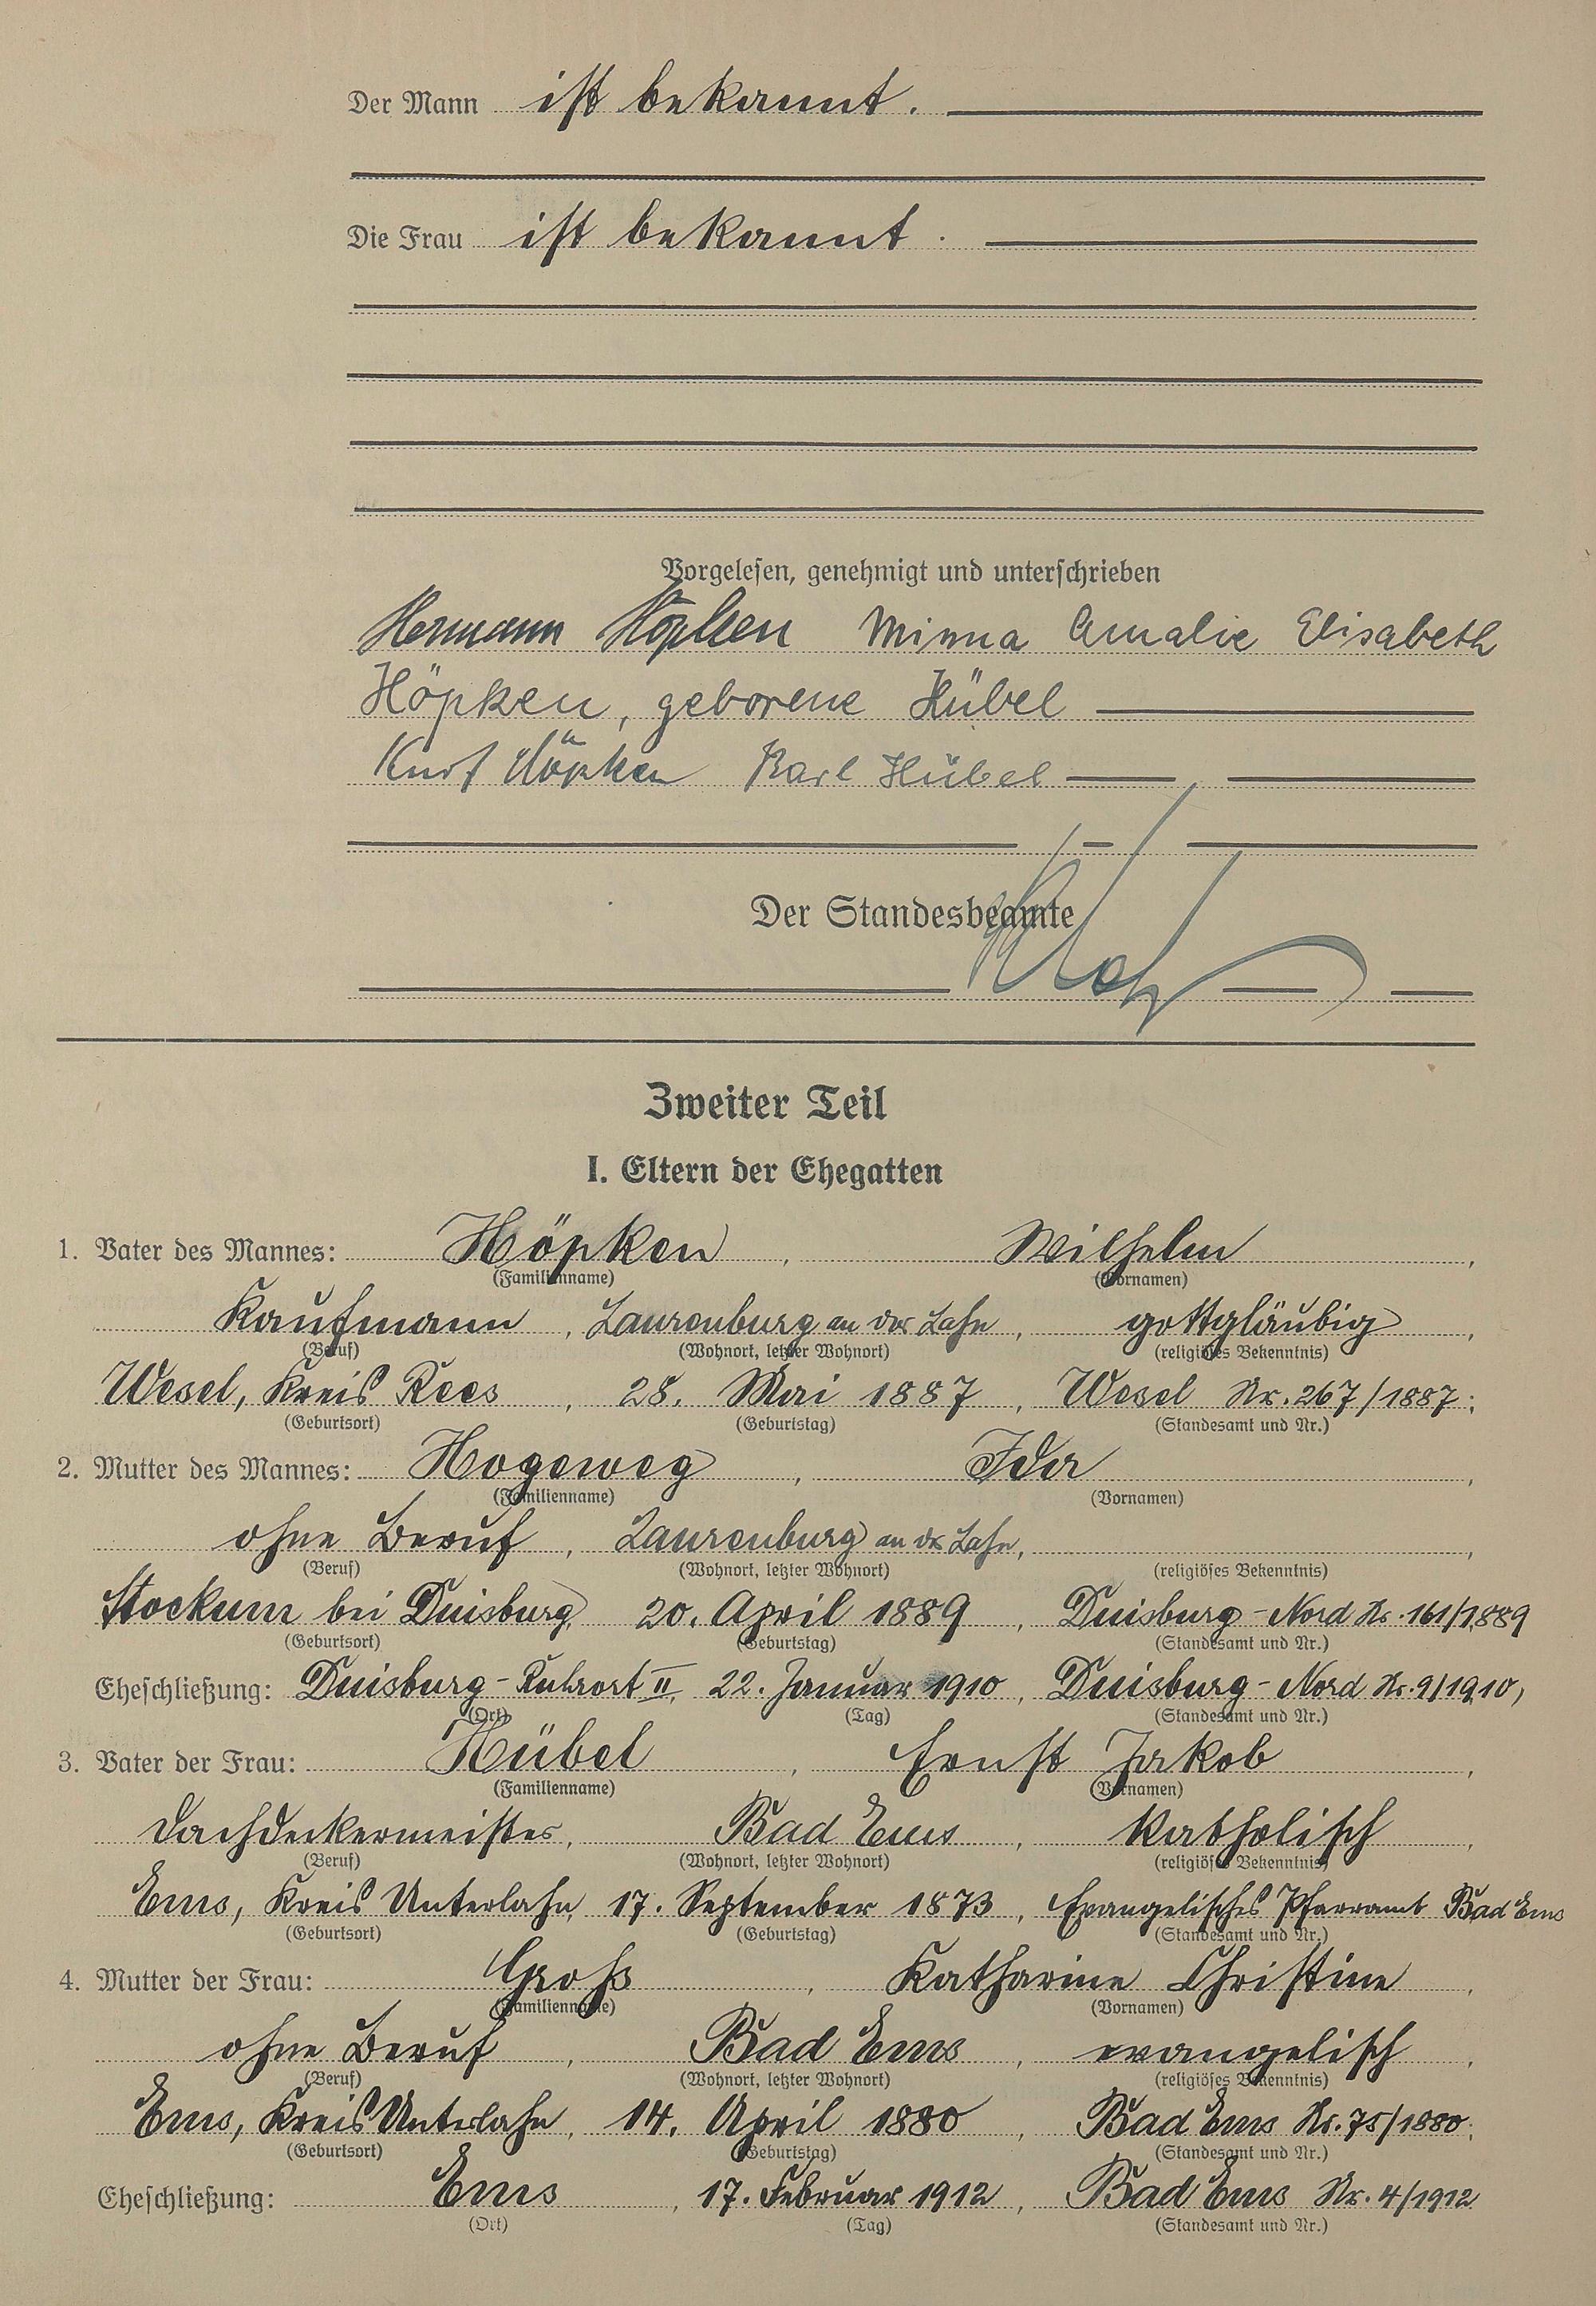 Der Mann ist bekannt.
Die Frau ist bekannt.
Vorgelesen, genehmigt und unterschrieben
Hermann Höpken Minna Amalie Elisabeth
Höpken, geborene Hübel
Kurt Höpken Karl Hübel
Der Standesbeamte
Zweiter Teil
I. Eltern der Ehegatten
1. Vater des Mannes: Höpken, Wilhelm,
(Familienname) (Vornamen)
Kaufmann, Laurenburg an der Lahn, gottgläubig,
(Beruf) (Wohnort, letzter Wohnort) (religiöses Bekenntnis)
Wesel, Kreis Rees, 28. Mai 1887, Wesel Nr. 267/1887;
(Geburtsort) (Geburtstag) (Standesamt und Nr.)
2. Mutter des Mannes: Hogeweg, Ida,
(Familienname) (Vornamen)
ohne Beruf, Laurenburg an der Lahn, ,
(Beruf) (Wohnort, letzter Wohnort) (religiöses Bekenntnis)
Stockum bei Duisburg, 20. April 1889, Duisburg-Nord Nr. 161/1889
(Geburtsort) (Geburtstag) (Standesamt und Nr.)
Eheschließung: Duisburg-Ruhrort II, 22. Januar 1910, Duisburg-Nord Nr. 9/1910,
(Ort) (Tag) (Standesamt und Nr.)
3. Vater der Frau: Hübel, Ernst Jakob,
(Familienname) (Vornamen)
Dachdeckermeister, Bad Ems, katholisch,
(Beruf) (Wohnort, letzter Wohnort) (religiöses Bekenntnis)
Ems, Kreis Unterlahn, 17. September 1873, Evangelisches Pfarramt Bad Ems
(Geburtsort) (Geburtstag) (Standesamt und Nr.)
4. Mutter der Frau: Groß, Katharine Christine,
(Familienname) (Vornamen)
ohne Beruf, Bad Ems, evangelisch,
(Beruf) (Wohnort, letzter Wohnort) (religiöses Bekenntnis)
Ems, Kreis Unterlahn, 14. April 1880, Bad Ems Nr. 75/1880;
(Geburtsort) (Geburtstag) (Standesamt und Nr.)
Eheschließung: Ems, 17. Februar 1912, Bad Ems Nr. 4/1912
(Ort) (Tag) (Standesamt und Nr.)